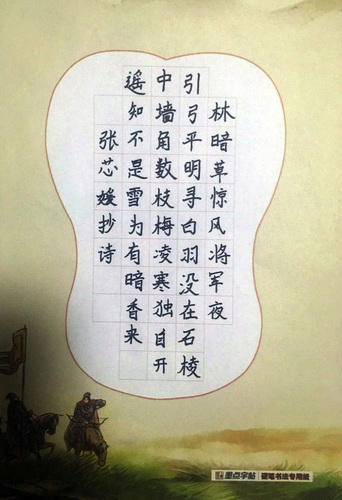 林暗草惊风将军夜
引弓平明寻白羽没在石棱
中墙角数枝梅凌寒独自开
遥知不是雪为有暗香来
张芯媛抄诗
墨点字帖 硬笔书法专用纸